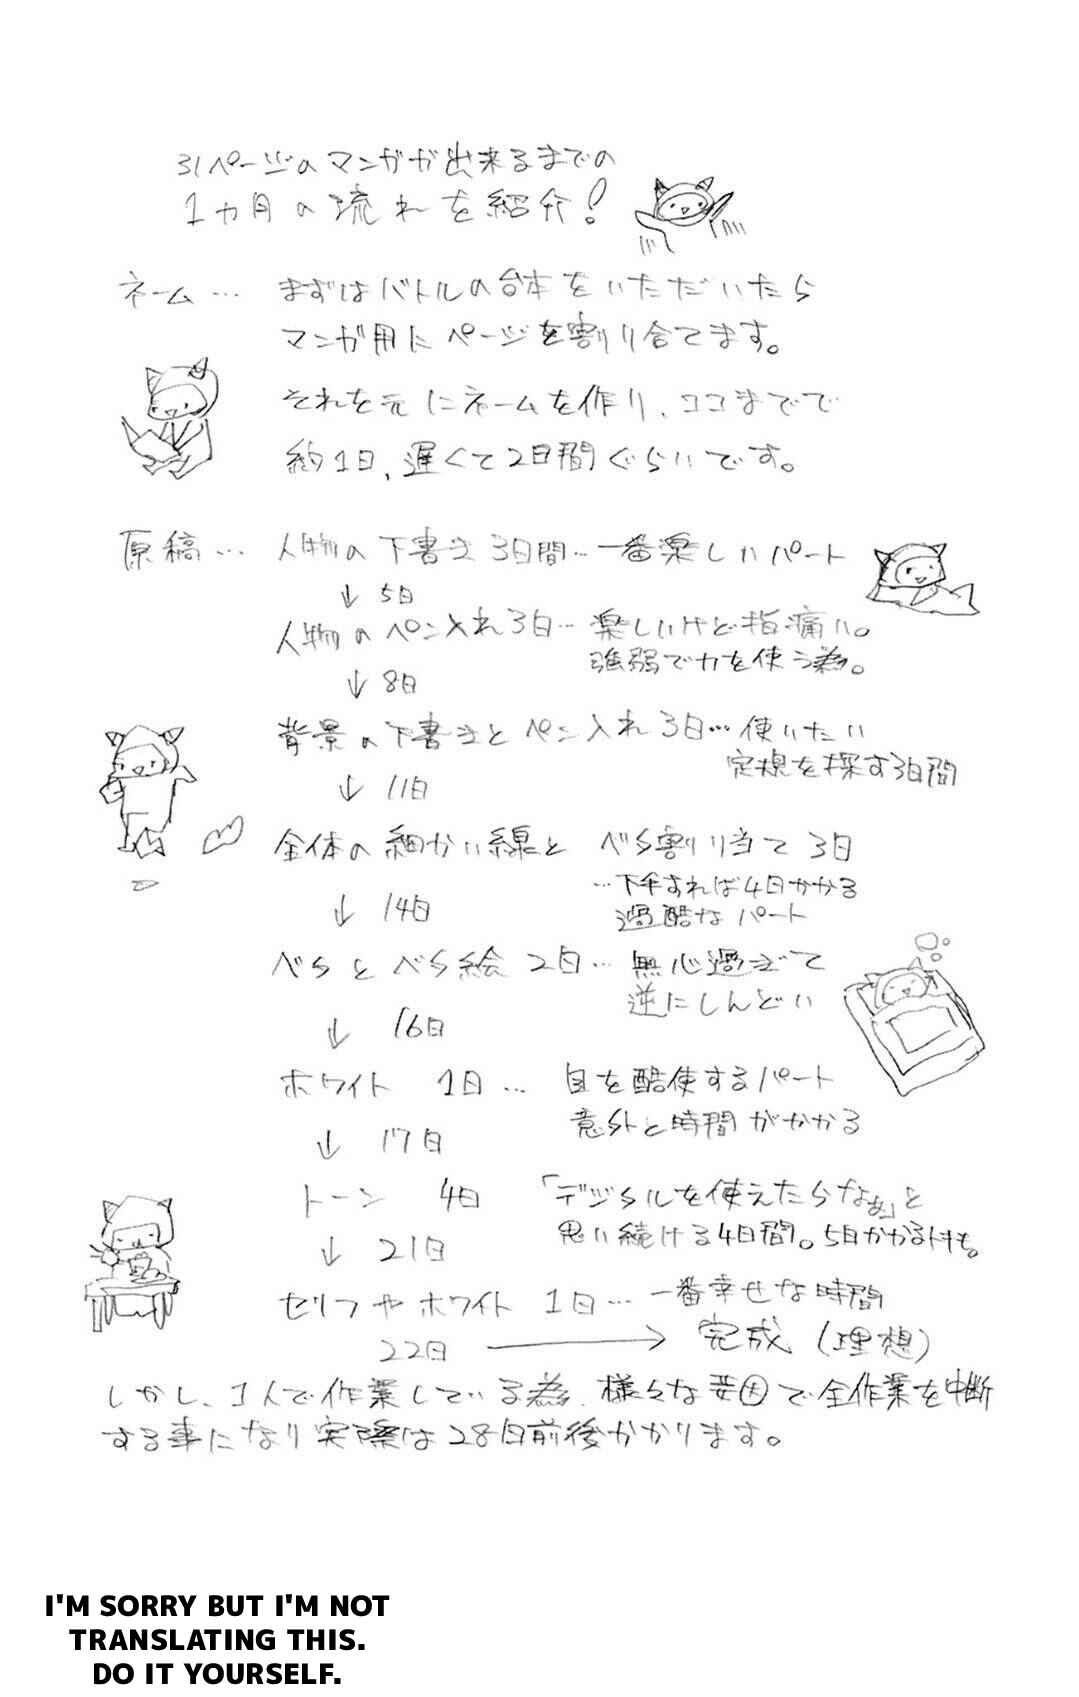 31ページのマンガが出来るまでの
1ヵ月の流れを紹介!
ネーム… まずはバトルの台本をいただいたら
マンガ用にページを割り合てます。
それを元にネームを作り、ココまでで
約1日、遅くて2日間ぐらいです。
原稿… 人物の下書き3日間…一番楽しいパート
↓5日
人物のペン入れ3日…楽しいけど指痛い。
強弱で力を使う為。
↓8日
背景の下書きとペン入れ3日…使いたい
定規を探す3日間
↓11日
全体の細かい線と ベタ割り当て3日
…下手すれば4日かかる
過酷なパート
↓14日
ベタとベタ絵 2日…無心過ぎて
逆にしんどい
↓16日
ホワイト 1日… 目を酷使するパート
意外と時間がかかる
↓17日
トーン 4日 「デジタルを使えたらなぁ」と
思い続ける4日間。5日かかる時も。
↓21日
セリフやホワイト 1日…一番幸せな時間
22日 → 完成(理想)
しかし、1人で作業している為、様々な要因で全作業を中断
する事になり実際は28日前後かかります。
I'M SORRY BUT I'M NOT
TRANSLATING THIS.
DO IT YOURSELF.